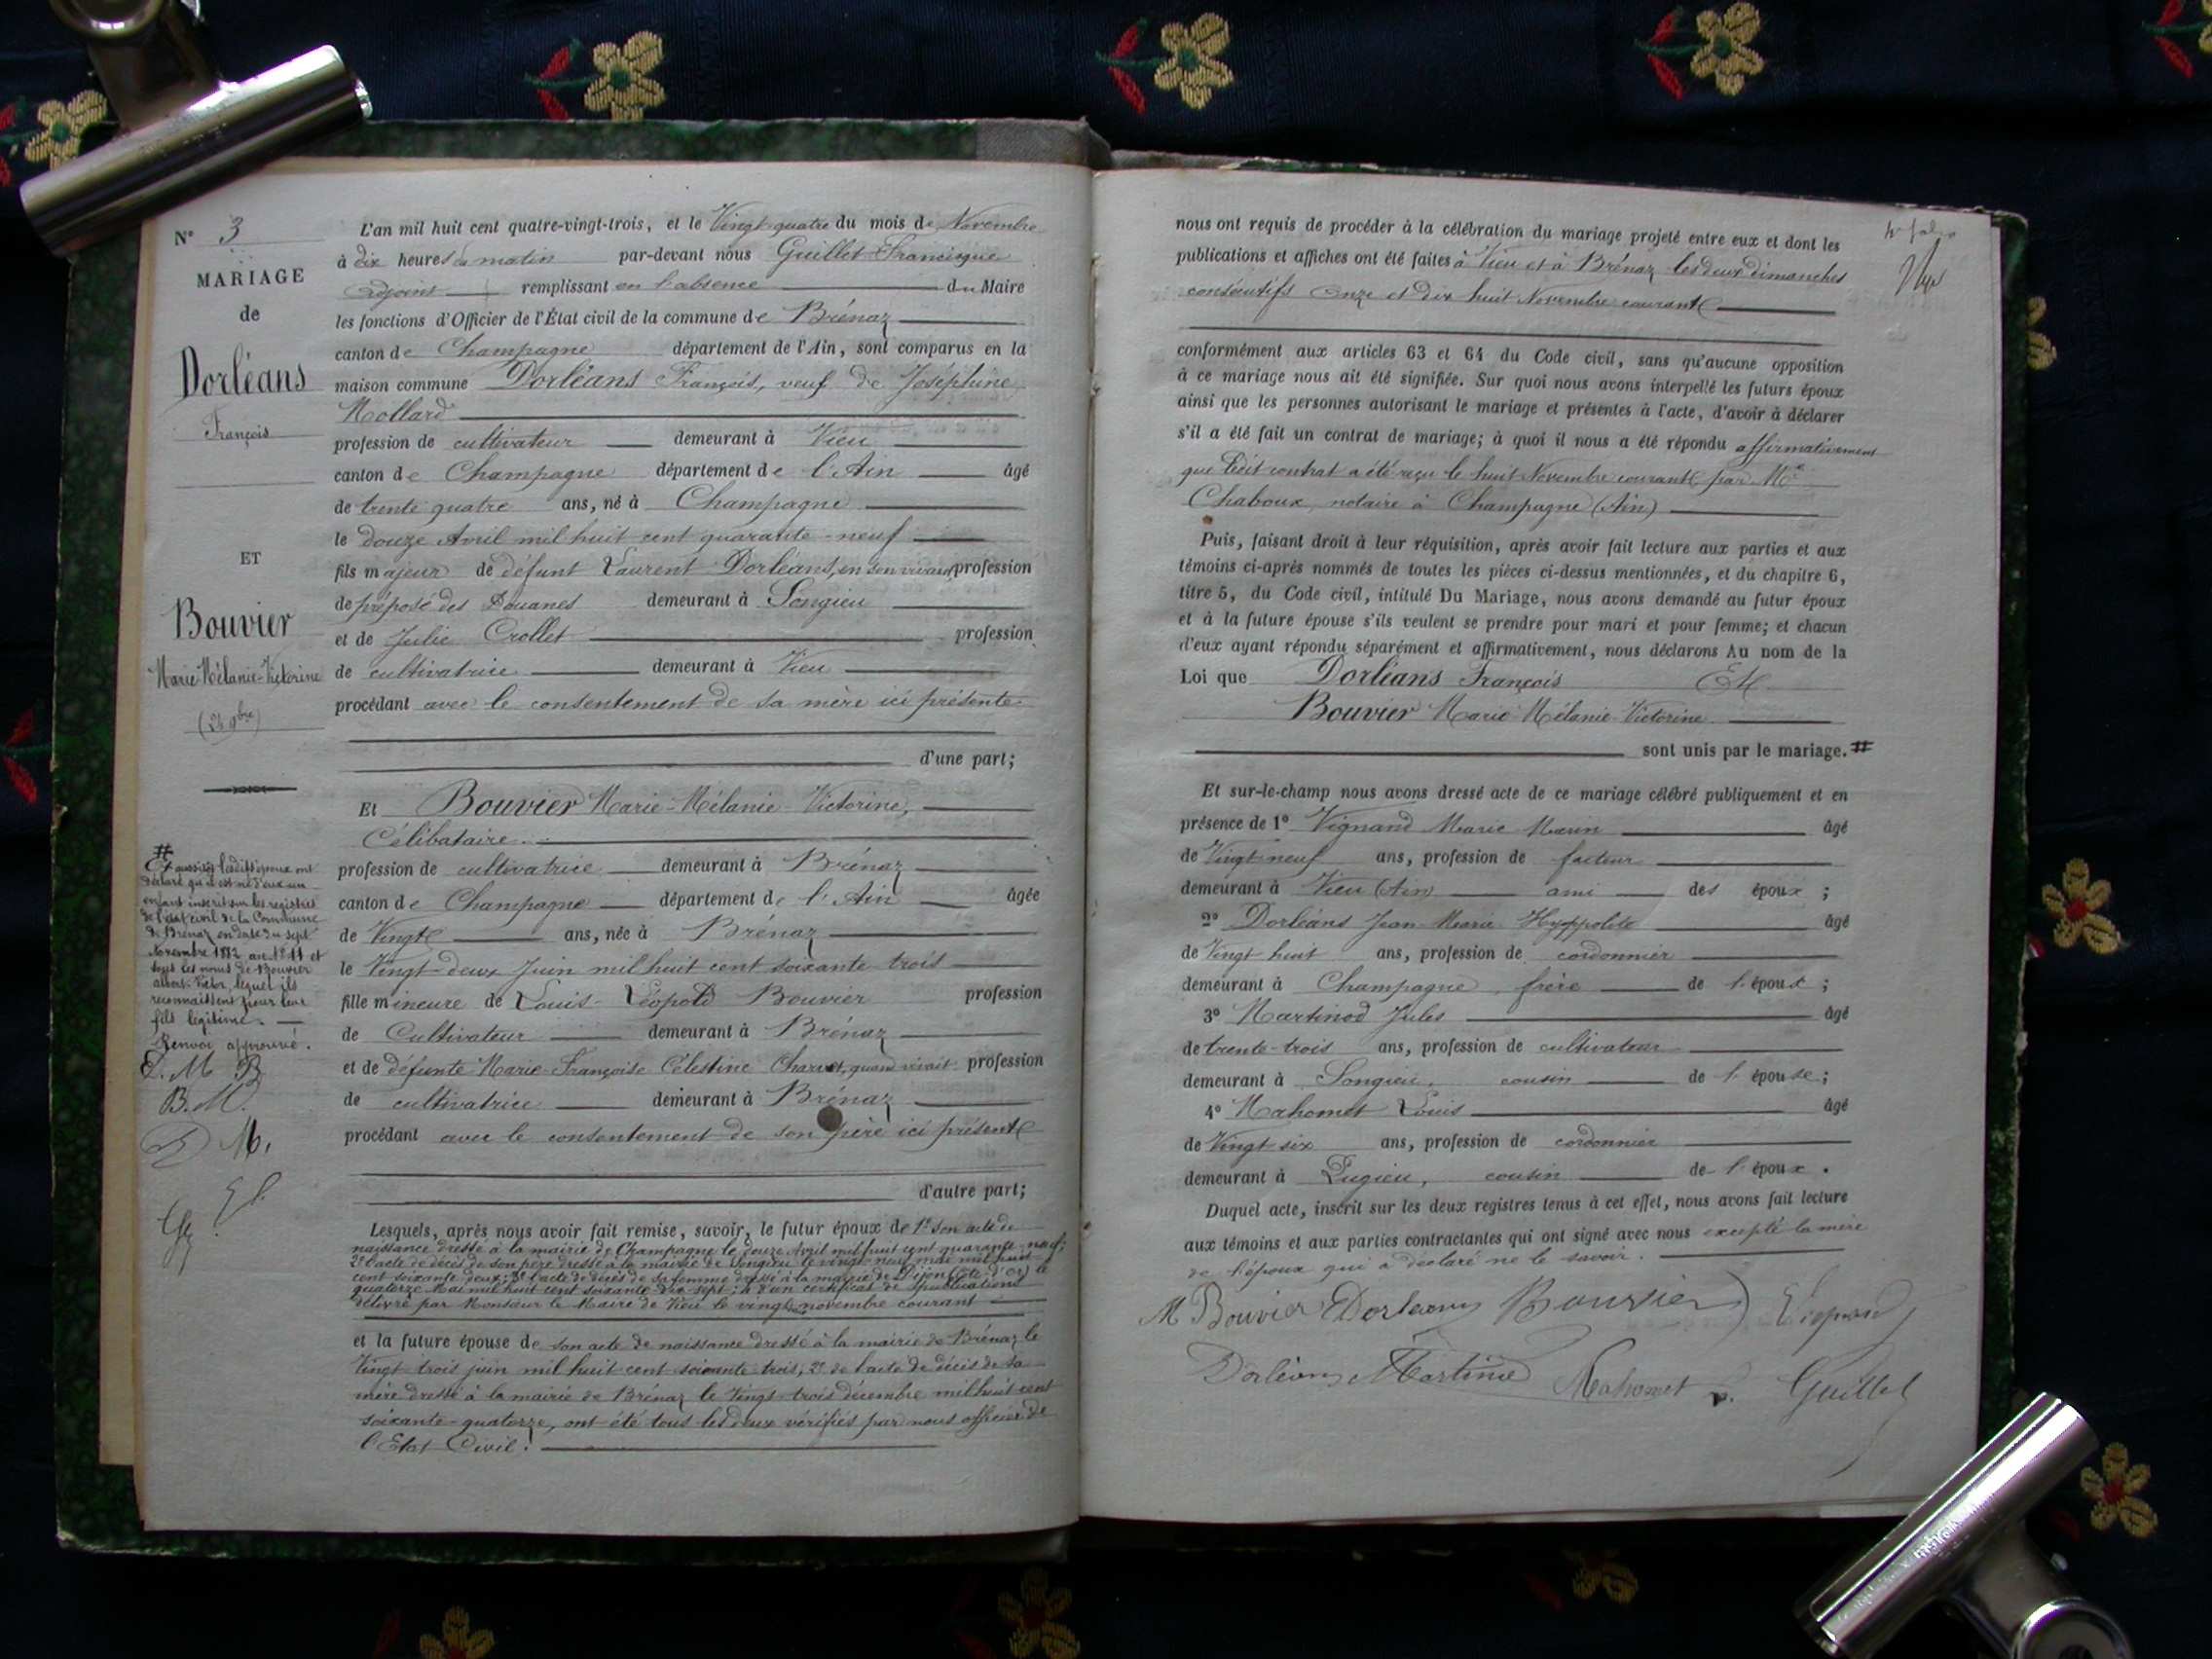 N° 3
MARIAGE
de
Dorléans
François
ET
Bouvier
Marie-Mélanie-Victorine
(24 9bre)
#
Et aussitôt lesdits époux ont
déclaré qu'il est né d'eux un
enfant inscrit sur les registres
de l'état civil de la Commune
de Brénaz en date du sept
Novembre 1882 au N° 11 et
sous les noms de Bouvier
Albert-Victor, lequel ils
reconnaissent pour leur
fils légitime. —
Renvoi approuvé.
D. M. B.
B. M.
D M.
L'an mil huit cent quatre-vingt-trois, et le Vingt-quatre du mois de Novembre
à dix heures du matin par-devant nous Guillet Francisque
adjoint remplissant en l'absence du Maire
les fonctions d'Officier de l'État civil de la commune de Brénaz
canton de Champagne département de l'Ain, sont comparus en la
maison commune Dorléans François, veuf de Joséphine
Mollard
profession de cultivateur demeurant à Vieu
canton de Champagne département de l'Ain âgé
de trente quatre ans, né à Champagne
le douze Avril mil huit cent quarante-neuf
fils majeur de défunt Laurent Dorléans, en son vivant profession
de préposé des Douanes demeurant à Songieu
et de Julie Crollet profession
de cultivatrice demeurant à Vieu
procédant avec le consentement de sa mère ici présente
d'une part;
Et Bouvier Marie-Mélanie-Victorine,
Célibataire
profession de cultivatrice demeurant à Brénaz
canton de Champagne département de l'Ain âgée
de Vingt ans, née à Brénaz
le Vingt-deux Juin mil huit cent soixante trois
fille mineure de Louis-Léopold Bouvier profession
de Cultivateur demeurant à Brénaz
et de défunte Marie-Françoise Célestine Charvet, quand vivait profession
de cultivatrice demeurant à Brénaz
procédant avec le consentement de son père ici présent
d'autre part;
Lesquels, après nous avoir fait remise, savoir, le futur époux de 1° son acte de
naissance dressé à la mairie de Champagne le douze Avril mil huit cent quarante-neuf;
2° l'acte de décès de son père dressé à la mairie de Songieu le vingt neuf mai mil huit
cent soixante deux; 3° l'acte de décès de sa femme dressé à la mairie de Dijon (Côte d'Or) le
quatorze Mai mil huit cent soixante dix-sept; 4° d'un certificat de publications
délivré par Monsieur le Maire de Vieu le vingt novembre courant
et la future épouse de son acte de naissance dressé à la mairie de Brénaz le
Vingt trois juin mil huit cent soixante trois; 2° de l'acte de décès de sa
mère dressé à la mairie de Brénaz le Vingt-trois décembre mil huit cent
soixante-quatorze, ont été tous les deux vérifiés par nous officier de
l'Etat Civil.
nous ont requis de procéder à la célébration du mariage projeté entre eux et dont les
publications et affiches ont été faites à Vieu et à Brénaz les deux dimanches
consécutifs onze et dix huit Novembre courant
conformément aux articles 63 et 64 du Code civil, sans qu'aucune opposition
à ce mariage nous ait été signifiée. Sur quoi nous avons interpellé les futurs époux
ainsi que les personnes autorisant le mariage et présentes à l'acte, d'avoir à déclarer
s'il a été fait un contrat de mariage; à quoi il nous a été répondu affirmativement
que ledit contrat a été reçu le huit Novembre courant par Me
Chaboux, notaire à Champagne (Ain)
Puis, faisant droit à leur réquisition, après avoir fait lecture aux parties et aux
témoins ci-après nommés de toutes les pièces ci-dessus mentionnées, et du chapitre 6,
titre 5, du Code civil, intitulé Du Mariage, nous avons demandé au futur époux
et à la future épouse s'ils veulent se prendre pour mari et pour femme; et chacun
d'eux ayant répondu séparément et affirmativement, nous déclarons Au nom de la
Loi que Dorléans François Et
Bouvier Marie Mélanie Victorine
sont unis par le mariage. #
Et sur-le-champ nous avons dressé acte de ce mariage célébré publiquement et en
présence de 1° Vignand Marie Marin âgé
de Vingt neuf ans, profession de facteur
demeurant à Vieu (Ain) ami des époux;
2° Dorléans Jean-Marie Hyppolite âgé
de Vingt huit ans, profession de cordonnier
demeurant à Champagne, frère de l'époux;
3° Martinod Jules âgé
de trente-trois ans, profession de cultivateur
demeurant à Songieu, cousin de l'épouse;
4° Mahomet Louis âgé
de Vingt six ans, profession de cordonnier
demeurant à Luyieu, cousin de l'époux.
Duquel acte, inscrit sur les deux registres tenus à cet effet, nous avons fait lecture
aux témoins et aux parties contractantes qui ont signé avec nous excepté la mère
de l'époux qui a déclaré ne le savoir.
M Bouvier Dorleans Bouvier
Dorléans Martinod Mahomet L. Guillet